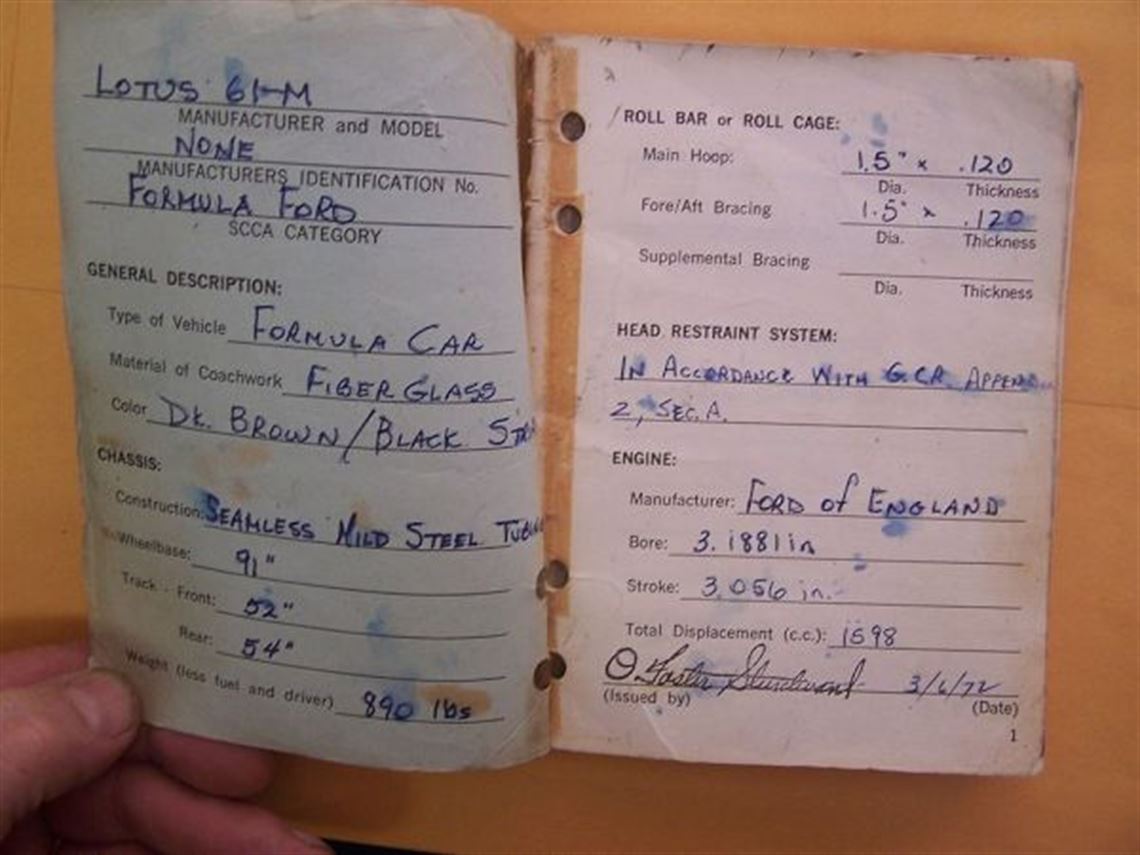 LOTUS 61-M
MANUFACTURER and MODEL
NONE
MANUFACTURERS IDENTIFICATION No.
FORMULA FORD
SCCA CATEGORY
GENERAL DESCRIPTION:
Type of Vehicle FORMULA CAR
Material of Coachwork FIBER GLASS
Color DK. BROWN/BLACK
CHASSIS:
Construction: SEAMLESS MILD STEEL
Wheelbase: 91"
Track - Front: 52"
Rear: 54"
Weight (less fuel and driver) 890 lbs
ROLL BAR or ROLL CAGE:
Main Hoop: 1.5" x .120
Dia. Thickness
Fore/Aft Bracing 1.5" x .120
Dia. Thickness
Supplemental Bracing
Dia. Thickness
HEAD RESTRAINT SYSTEM:
IN ACCORDANCE WITH G.C.R.
2, SEC. A.
ENGINE:
Manufacturer: FORD of ENGLAND
Bore: 3.1881 in
Stroke: 3.056 in.
Total Displacement (c.c.): 1598
3/6/72
(Issued by) (Date)
1